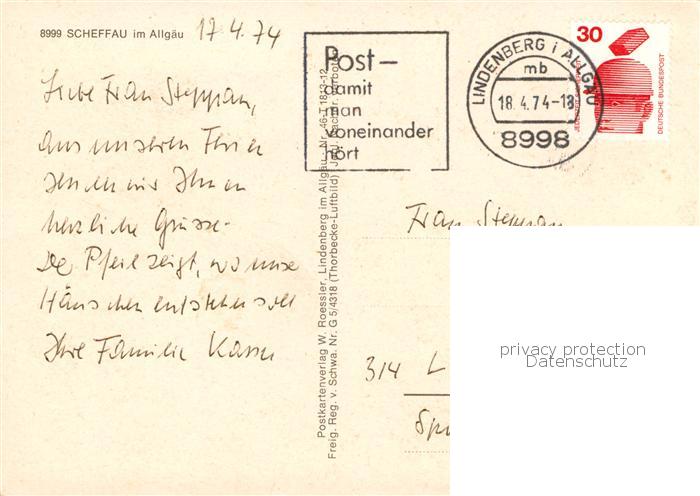 8999 SCHEFFAU im Allgäu 17.4.74
Liebe Frau Steppan,
aus unseren Ferien
senden wir Ihnen
herzliche Grüsse.
Der Pfeil zeigt, wo unser
Häuschen entstehen soll
Ihre Familie
Post—
damit
man
voneinander
hört
LINDENBERG i ALLGÄU
mb
18.4.74-18
8998
30
DEUTSCHE BUNDESPOST
Postkartenverlag W. Roessler, Lindenberg im Allgäu, Nr. 46-T 1813-12
Freig. Reg. v. Schwa. Nr. G 5/4318 (Thorbecke-Luftbild)
Frau Steppan
314 L
privacy protection
Datenschutz